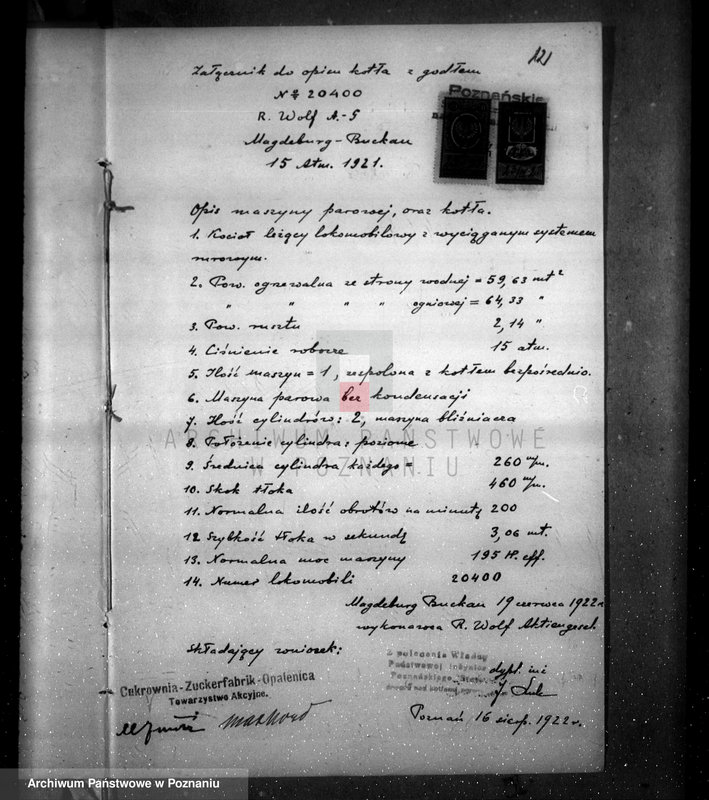 121
Załącznik do opisu kotła z godłem
№ 20400
R. Wolf A.-G
Magdeburg-Buckau
15 Atm. 1921.
Poznańskie
Opis maszyny parowej, oraz kotła.
1. Kocioł leżący lokomobilowy z wyciąganym systemem
rurowym.
2. Pow. ogrzewalna ze strony wodnej = 59,63 mt²
" " " " ogniowej = 64,33 "
3. Pow. rusztu 2,14 "
4. Ciśnienie robocze 15 atm.
5. Ilość maszyn = 1, zespolona z kotłem bezpośrednio.
6. Maszyna parowa bez kondensacji
7. Ilość cylindrów: 2, maszyna bliźniacza
8. Położenie cylindra: poziome
9. Średnica cylindra każdego = 260 m/m.
10. Skok tłoka 460 m/m.
11. Normalna ilość obrotów na minutę 200
12. Szybkość tłoka w sekundę 3,06 mt.
13. Normalna moc maszyny 195 H. eff.
14. Numer lokomobili 20400
Magdeburg Buckau 19 czerwca 1922 r
wykonawca R. Wolf Aktiengesel.
Składający wniosek:
Cukrownia-Zuckerfabrik-Opalenica
Towarzystwo Akcyjne.
Z polecenia Władzy
Państwowej Inżynier
Poznańskiego
dypl. inż
Poznań 16 sierp. 1922 r.
ARCHIWUM PAŃSTWOWE
W POZNANIU
Archiwum Państwowe w Poznaniu